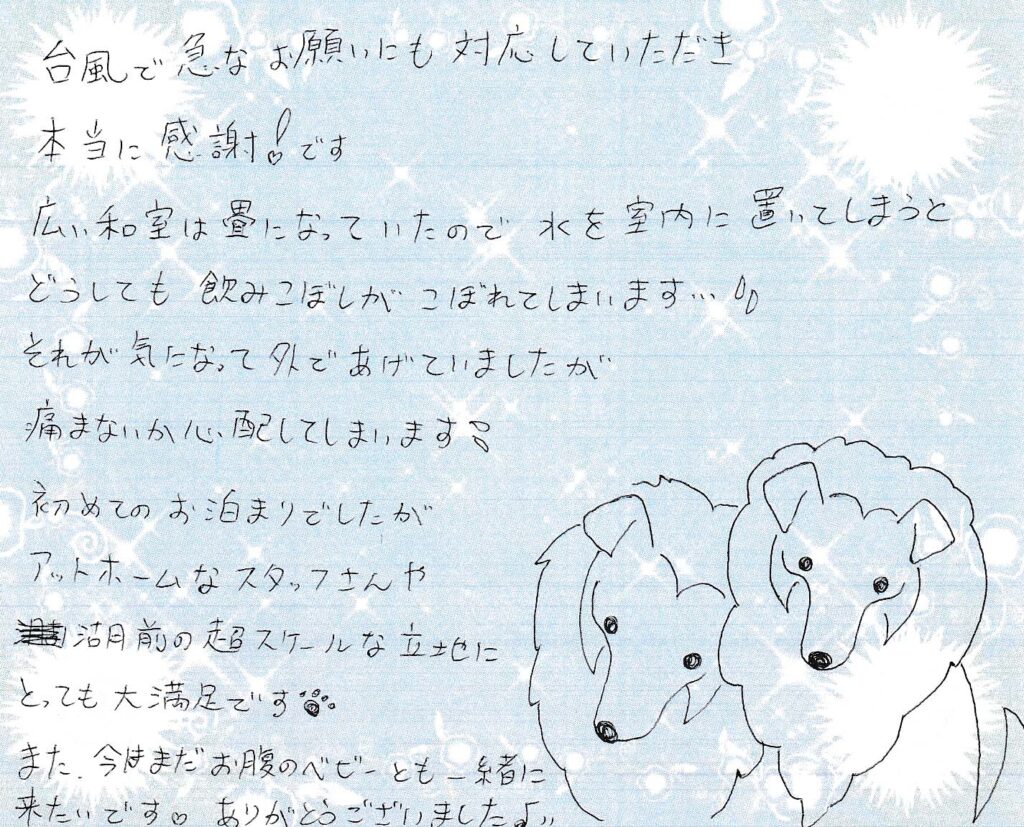 台風で急なお願いにも対応していただき
本当に感謝!です
広い和室は畳になっていたので 水を室内に置いてしまうと
どうしても飲みこぼしがこぼれてしまいます…
それが気になって外であげていましたが
痛まないか心配してしまいます
初めてのお泊まりでしたが
アットホームなスタッフさんや
湖月前の超スケールな立地に
とっても大満足です
また、今はまだお腹のベビーとも一緒に
来たいです♡ ありがとうございました♪